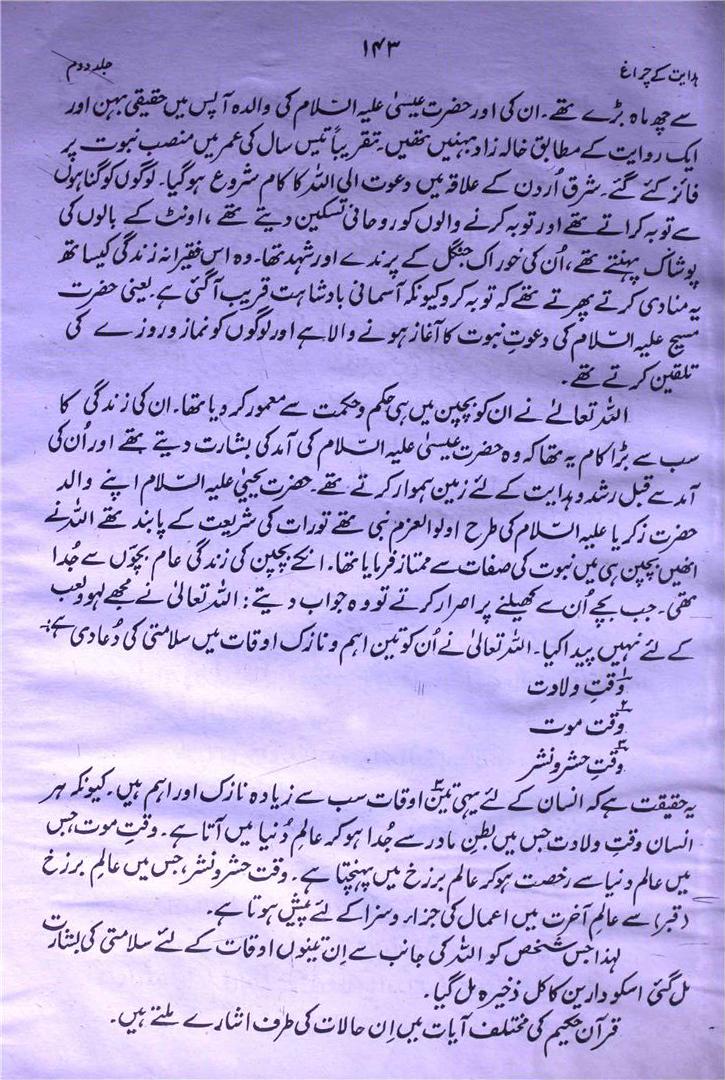 ۱۴۳
ہدایت کے چراغ
جلد دوم
سے چھ ماہ بڑے تھے۔ ان کی اور حضرت عیسیٰ علیہ السّلام کی والدہ آپس میں حقیقی بہن اور
ایک روایت کے مطابق خالہ زاد بہنیں تھیں۔ تقریباً تیس سال کی عمر میں منصب نبوت پر
فائز کئے گئے۔ شرق اُردن کے علاقہ میں دعوت الی اللہ کا کام شروع ہوگیا۔ لوگوں کو گناہوں
سے توبہ کراتے تھے اور توبہ کرنے والوں کو روحانی تسکین دیتے تھے، اونٹ کے بالوں کی
پوشاک پہنتے تھے، اُن کی خوراک جنگل کے پرندے اور شہد تھا۔ وہ اس فقیرانہ زندگی کیساتھ
یہ منادی کرتے پھرتے تھے کہ توبہ کرو کیونکہ آسمانی بادشاہت قریب آگئی ہے یعنی حضرت
مسیح علیہ السّلام کی دعوتِ نبوت کا آغاز ہونے والا ہے اور لوگوں کو نماز و روزے کی
تلقین کرتے تھے۔
اللہ تعالےٰ نے ان کو بچپن میں ہی حکم و حکمت سے معمور کر دیا تھا۔ ان کی زندگی کا
سب سے بڑا کام یہ تھا کہ وہ حضرت عیسیٰ علیہ السّلام کی آمد کی بشارت دیتے تھے اور اُن کی
آمد سے قبل رشد و ہدایت کے لئے زمین ہموار کرتے تھے۔ حضرت یحییٰ علیہ السّلام اپنے والد
حضرت زکریا علیہ السّلام کی طرح اولوالعزم نبی تھے تورات کی شریعت کے پابند تھے اللہ نے
انھیں بچپن ہی میں نبوت کی صفات سے ممتاز فرمایا تھا۔ انکے بچپن کی زندگی عام بچوّں سے جُدا
تھی۔ جب بچے اُن سے کھیلنے پر اصرار کرتے تو وہ جواب دیتے: اللہ تعالیٰ نے مجھے لہو و لعب
کے لئے نہیں پیدا کیا۔ اللہ تعالیٰ نے اُن کو تین اہم و نازک اوقات میں سلامتی کی دُعا دی ہے:۔
۱؎ وقتِ ولادت
۲؎ وقت موت
۳؎ وقتِ حشر و نشر
یہ حقیقت ہے کہ انسان کے لئے یہی تین ۳ اوقات سب سے زیادہ نازک اور اہم ہیں۔ کیونکہ ہر
انسان وقتِ ولادت جس میں بطنِ مادر سے جُدا ہو کر عالمِ دُنیا میں آتا ہے۔ وقتِ موت، جس
میں عالمِ دنیا سے رخصت ہو کر عالمِ برزخ میں پہنچتا ہے۔ وقت حشر و نشر، جس میں عالمِ برزخ
(قبر) سے عالمِ آخرت میں اعمال کی جزاء و سزا کے لئے پیش ہوتا ہے۔
لہٰذا جس شخص کو اللہ کی جانب سے اِن تینوں اوقات کے لئے سلامتی کی بشارت
مل گئی اسکو دارین کا کل ذخیرہ مل گیا۔
قرآن حکیم کی مختلف آیات میں اِن حالات کی طرف اشارے ملتے ہیں۔